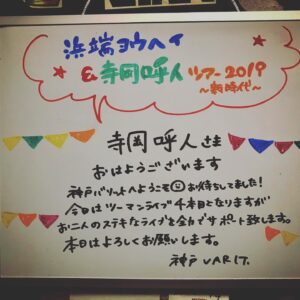 浜端ヨウヘイ
& 寺岡呼人 ツアー2019
～新時代～
寺岡呼人さま
おはようございます
神戸バリットへようこそ☺お待ちしてました!
今日はツーマンライブ4本目となりますが
お二人のステキなライブを全力でサポート致します。
本日はよろしくお願いします。
神戸VARIT.